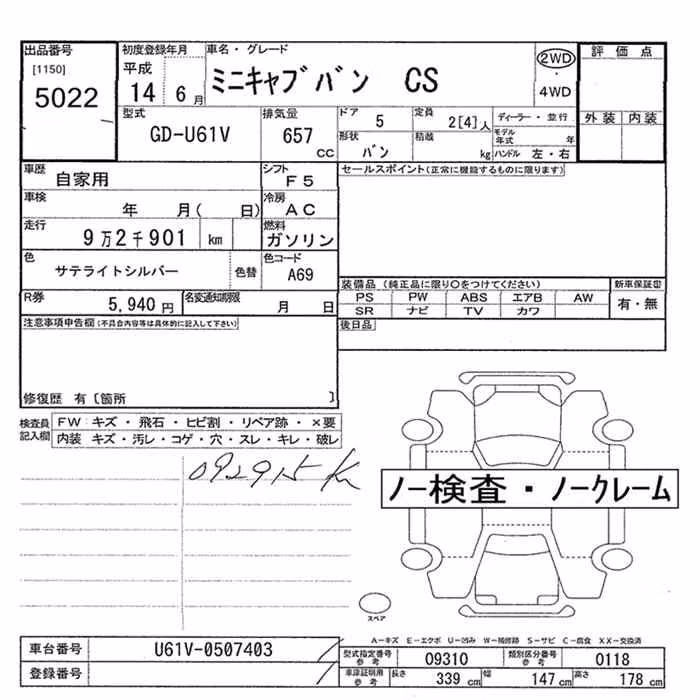 出品番号
[1150]
5022
初度登録年月
平成
14 6月
車名・グレード
ミニキャブバン CS
2WD
・
4WD
評価点
外装 内装
型式
GD-U61V
排気量
657
CC
ドア 5
定員 2[4]人
ディーラー・並行
形状
バン
積載
kg
モデル年式 年
ハンドル 左・右
車歴
自家用
シフト
F5
セールスポイント(正常に機能するものに限ります)
車検
年 月( 日)
冷房
AC
走行
9万2千901 km
燃料
ガソリン
色
サテライトシルバー
色替
色コード
A69
装備品(純正品に限り○をつけてください)
新車保証書
PS PW ABS エアB AW
SR ナビ TV カワ
有・無
R券
5,940円
名変通知期限
月 日
後日品
注意事項申告欄(不具合内容等は具体的に記入して下さい)
修復歴 有〔箇所 〕
検査員記入欄
FW: キズ・飛石・ヒビ割・リペア跡・×要
内装 キズ・汚レ・コゲ・穴・スレ・キレ・破レ
092915 K
ノー検査・ノークレーム
スペア
A-キズ E-エクボ U-凹み W-補修跡 S-サビ C-腐食 XX-交換済
車台番号
U61V-0507403
登録番号
型式指定番号 参考
09310
類別区分番号 参考
0118
車庫証明用 参考
長さ 339cm 幅 147cm 高さ 178cm